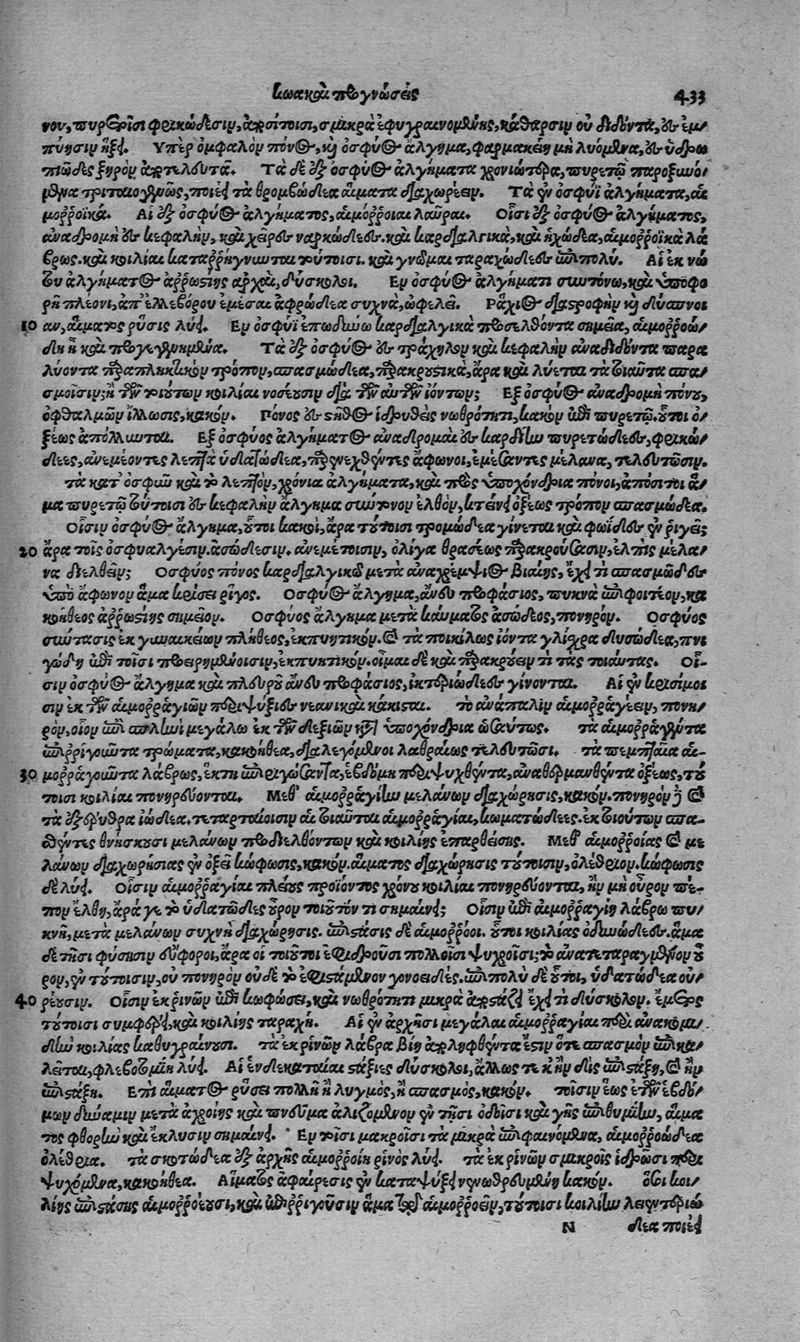 κωακαὶ προγνώσεις 433
νον, πυρετοῖσι φρικώδεσιν, ἀποσίτοισι, σμικρὰ ἐφυγραινομένης, κάθαρσιν οὐ διδόντα, ἐν ἐμ/
πύησιν ἥξει. Ὑπὲρ ὀμφαλὸν πόνος, καὶ ὀσφύος ἄλγημα, φαρμακείῃ μὴ λυόμενα, ἐν ὑδρω
πιῶδες ξηρὸν ἀποτελευτᾷ. Τὰ δὲ ἐξ ὀσφύος ἀλγήματα χρονιώτερα, πυρετῷ παροξυνό/
μενα τριταιοφυῶς, ποιέει τὰ θρομβώδεα αἵματα διαχωρέειν. Τὰ ἐν ὀσφύϊ ἀλγήματα, αἱ
μορροϊκά. Αἱ ἐξ ὀσφύος ἀλγήματος, αἱμόρροιαι λαῦραι. Οἷσι ἐξ ὀσφύος ἀλγήματος,
ἀναδρομὴ ἐν κεφαλὴν, καὶ χεῖρες ναρκώδεες. καὶ καρδιαλγικὰ, καὶ ἠχώδεα, αἱμορροϊκὰ λά
βρως. καὶ κοιλίαι καταρρήγνυνται τούτοισι. καὶ γνῶμαι ταραχώδεες ἐπιπολύ. Αἱ ἐκ νώ
του ἀλγήματος ἀρρωστίης ἀρχαὶ, δύσκολοι. Ἐν ὀσφύος ἀλγήματι συντόνῳ, καὶ ὑποφο
ρῇ πλέονι, ἀπ' ἐλλεβόρου ἐμέσαι ἀφρώδεα συχνὰ, ὠφελεῖ. Ῥάχιος διαστροφὴν καὶ δύσπνοι
10 αν, αἵματος ῥύσις λύει. Ἐν ὀσφύϊ ἐπωδύνῳ καρδιαλγικὰ προσελθόντα σημεῖα, αἱμορροώ/
δη ἢ καὶ προγεγενημένα. Τὰ ἐξ ὀσφύος ἐν τράχηλον καὶ κεφαλὴν ἀναδιδόντα παρα
λύοντα παραπληκτικὸν τρόπον, σπασμώδεα, παρακρουστικὰ, ἆρα καὶ λύεται τὰ τοιαῦτα σπα/
σμοῖσιν; ἢ ἐκ τῶν τοιούτων κοιλίαι νοσέουσιν διὰ τῶν αὐτῶν ἰόντων; Ἐξ ὀσφύος ἀναδρομὴ πόνου,
ὀφθαλμῶν ἴλλωσις, κακόν. Πόνος ἐν στῆθος ἱδρυθεὶς νωθρότητι, κακὸν ἐπὶ πυρετῷ. οὗτοι ὀ/
ξέως ἀπόλλυνται. Ἐξ ὀσφύος ἀλγήματος ἀναδρομαὶ ἐν καρδίην πυρετώδεες, φρικώ/
δεες, ἀνεμέοντες λεπτὰ ὑδατώδεα, παρενεχθέντες ἄφωνοι, ἐμέσαντες μέλανα, τελευτῶσιν.
τὰ κατ' ὀσφὺν καὶ τὸ λεπτὸν, χρόνια ἀλγήματα, καὶ πρὸς ὑποχόνδρια πόνοι, ἀπόσιτοι ἅ/
μα πυρετῷ τούτοισι ἐν κεφαλὴν ἄλγημα σύντονον ἐλθὸν, κτείνει ὀξέως τρόπον σπασμώδεα.
Οἷσιν ὀσφύος ἄλγημα, οὗτοι κακοὶ, ἆρα τούτοισι τρομώδεα γίνεται καὶ φωνὴ ὡς ἐν ῥίγει;
20 ἆρα τοῖς ὀσφυαλγέσιν. ἀσώδεσιν. ἀνεμέτοισιν, ὀλίγα θρασέως παρακρούσασιν, ἐλπὶς μέλα/
να διελθεῖν; Ὀσφύος πόνος καρδιαλγικῷ μετὰ ἀναχρέμψιος βιαίης, ἔχει τι σπασμῶδες
ὑπὸ ἄφωνον ἅμα κρίσει ῥῖγος. Ὀσφύος ἄλγημα, ἄνευ προφάσιος, πυκνὰ ἐπιφοιτέον, κα
κοήθεος ἀρρωστίης σημεῖον. Ὀσφύος ἄλγημα μετὰ καύματος ἀσώδεος, πονηρόν. Ὀσφύος
σύντασις ἐκ γυναικείων πλήθεος, ἐκπυητικόν. καὶ τὰ ποικίλως ἰόντα γλίσχρα δυσώδεα, πνι
γώδη ἐπὶ τοῖσι προειρημένοισιν, ἐκπυητικόν. οἶμαι δὲ καὶ παρακρούειν τι τὰς τοιαύτας. Οἷ-
σιν ὀσφύος ἄλγημα καὶ πλευροῦ ἄνευ προφάσιος, ἰκτεριώδεες γίνονται. Αἱ ἐν κρισίμοι
σιν ἐκ τῶν αἱμορραγιῶν περιψύξεις νεανικαὶ κάκισται. τὸ ἀνάπαλιν αἱμορραγέειν, πονη/
ρὸν, οἷον ἐπὶ σπληνὶ μεγάλῳ ἐκ τῶν δεξιῶν καὶ καθ' ὑποχόνδρια ὡσαύτως. τὰ αἱμορραγέοντα
ἐπιρριγοῦντα τρώματα, κακοήθεα, διαλεγόμενοι λαθραίως τελευτῶσι. τὰ πεμπταῖα αἱ-
30 μορραγοῦντα λάβρως, ἕκτῃ ἐπιριγώσαντα, ἑβδόμῃ περιψυχθέντα, ἀναθερμανθέντα ὀξέως, τού
τοισι κοιλίαι πονηρεύονται. Μεθ' αἱμορραγίην μελάνων διαχώρησις, κακόν. πονηρὸν δὲ καὶ
τὰ ἐξέρυθρα ἰώδεα. τεταρταίοισιν αἱ τοιαῦται αἱμορραγίαι, κωματώδεες. ἐκ τούτων σπα-
σθέντες θνήσκουσι μελάνων προδιελθόντων καὶ κοιλίης ἐπαρθείσης. Μεθ' αἱμορροίας καὶ με
λάνων διαχωρήσιας ἐν ὀξεῖ κώφωσις, κακόν. αἵματος διαχώρησις τούτοισιν, ὀλέθριον. κώφωσις
δὲ λύει. Οἷσιν αἱμορραγίαι πλέους προϊόντος χρόνου κοιλίαι πονηρεύονται, ἢν μὴ οὖρον πέ-
πον ἔλθῃ, ἆρά γε τὸ ὑδατῶδες οὖρον τοιοῦτόν τι σημαίνει; Οἷσιν ἐπὶ αἱμορραγίῃ λάβρῳ πυ/
κνῇ, μετὰ μελάνων συχνὴ διαχώρησις. ἐπιστάσις δὲ αἱμόρροοι. οὗτοι κοιλίας ὀδυνώδεες. ἅμα
δέ τῇσι φύσῃσιν εὔφοροι, ἆρα οἱ τοιοῦτοι ἐφιδροῦσι πολλοῖσι ψυχροῖσι; τὸ ἀνατεταραγμένον οὖ
ρον, ἐν τούτοισιν, οὐ πονηρὸν οὐδὲ τὸ ἐφιστάμενον γονοειδές. ἐπιπολὺ δὲ οὗτοι, ὑδατώδεα οὐ/
40 ρέουσιν. Οἷσιν ἐκ ῥινῶν ἐπὶ κωφώσει, καὶ νωθρότητι μικρὰ ἀποστάζει ἔχει τι δύσκολον. ἔμετος
τούτοισι συμφέρει, καὶ κοιλίης ταραχή. Αἱ ἐν ἀρχῇσι μεγάλαι αἱμορραγίαι περὶ ἀνακομι/
δὴν κοιλίας καθυγραίνουσι. τὰ ἐκ ῥινῶν λάβρα βίῃ ἀποληφθέντα ἔστιν ὅτε σπασμὸν ἐπικα/
λέεται, φλεβοτομίη λύει. Αἱ ἑνδεκαταῖαι στάξιες δύσκολοι, ἄλλως τε κἢν δὶς ἐπιστάξῃ, καὶ ἢν
ἐπιστάξῃ. Ἐπὶ αἵματος ῥύσει πολλῇ ἢ λυγμὸς, ἢ σπασμὸς, κακόν. τοῖσιν ἕως ἐτῶν ἑβδό/
μων δύναμιν μετὰ ἀχροίης καὶ πνεῦμα ἁλιζόμενον ἐν τῇσι ὁδοῖσι καὶ γῆς ἐπιθυμίην, αἵμα
τος φθορὴν καὶ ἔκλυσιν σημαίνει. Ἐν τοῖσι μακροῖσι τὰ μικρὰ ἐπιφαινόμενα, αἱμορροώδεα
ὀλέθρια. τὰ σκοτώδεα ἐξ ἀρχῆς αἱμορροίη ῥινὸς λύει. τὰ ἐκ ῥινῶν σμικροῖς ἱδρῶσι περι
ψυχόμενα, κακοήθεα. Αἵματος ἀφαίρεσις ἐν καταψύξει νενωθρευμένῃ κακόν. ὅσοι κοι/
λίης ἐπιστάσης αἱμορροέουσι, καὶ ἐπιρριγοῦσιν ἅμα τῷ αἱμορροεῖν, τούτοισι κοιλίην λειεντεριώ
N δεα ποιέει